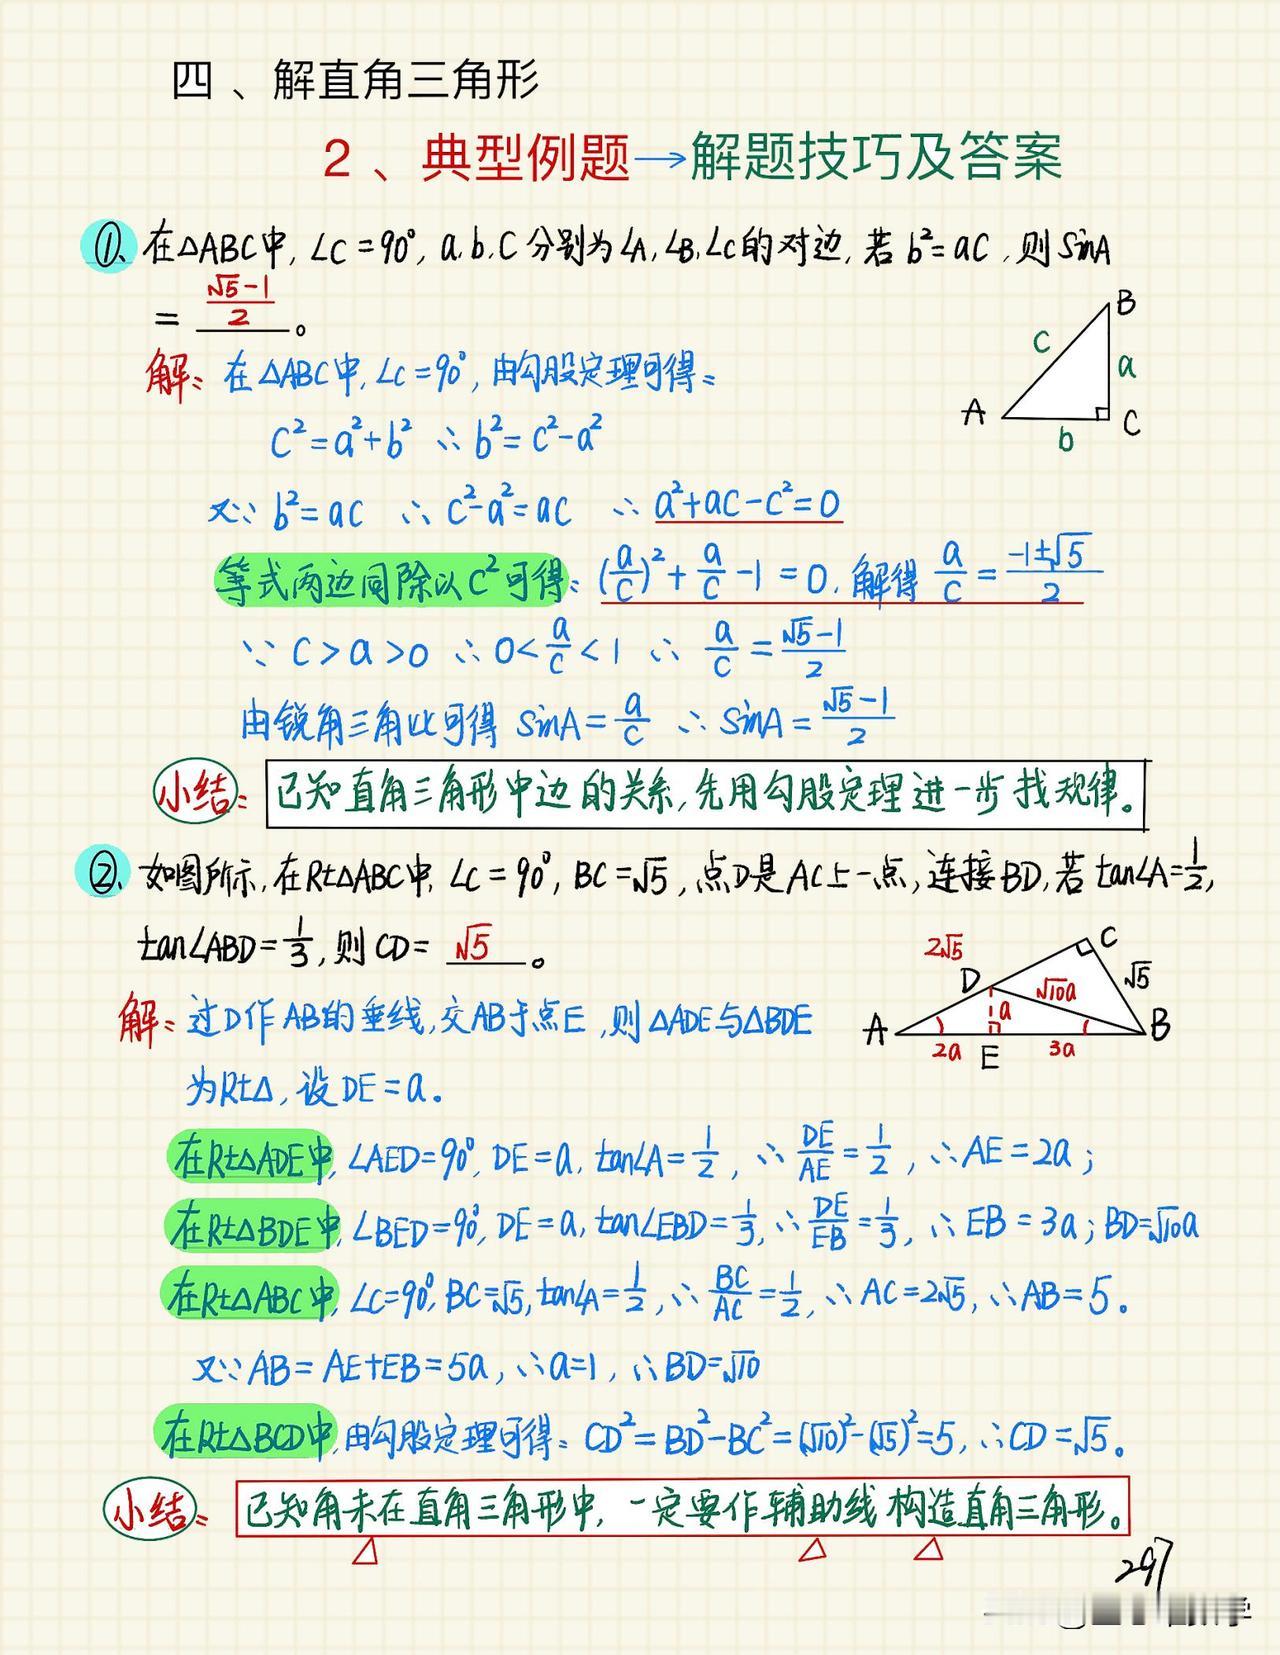 四、解直角三角形
2、典型例题→解题技巧及答案
①、在△ABC中,∠C=90°,a.b.C分别为∠A,∠B,∠C的对边,若b²=aC,则SinA
=(√5-1)/2。
解:在△ABC中,∠C=90°,由勾股定理可得:
C²=a²+b² ∴b²=C²-a²
又∵b²=aC ∴C²-a²=aC ∴a²+aC-C²=0
等式两边同除以C²可得:(a/C)²+a/C-1=0,解得a/C=(-1±√5)/2
∵C>a>0 ∴0<a/C<1 ∴a/C=(√5-1)/2
由锐角三角比可得SinA=a/C ∴SinA=(√5-1)/2
B
C
a
A
b
C
小结:已知直角三角形中边的关系,先用勾股定理进一步找规律。
②、如图所示,在Rt△ABC中,∠C=90°,BC=√5,点D是AC上一点,连接BD,若tan∠A=1/2,
tan∠ABD=1/3,则CD=√5。
解:过D作AB的垂线,交AB于点E,则△ADE与△BDE
为Rt△,设DE=a。
2√5
C
D
√5
√10a
a
A
B
2a
E
3a
在Rt△ADE中,∠AED=90°,DE=a,tan∠A=1/2,∴DE/AE=1/2,∴AE=2a;
在Rt△BDE中,∠BED=90°,DE=a,tan∠EBD=1/3,∴DE/EB=1/3,∴EB=3a;BD=√10a
在Rt△ABC中,∠C=90°,BC=√5,tan∠A=1/2,∴BC/AC=1/2,∴AC=2√5,∴AB=5。
又∵AB=AE+EB=5a,∴a=1,∴BD=√10
在Rt△BCD中,由勾股定理可得:CD²=BD²-BC²=(√10)²-(√5)²=5,∴CD=√5。
小结:已知角未在直角三角形中,一定要作辅助线构造直角三角形。
297